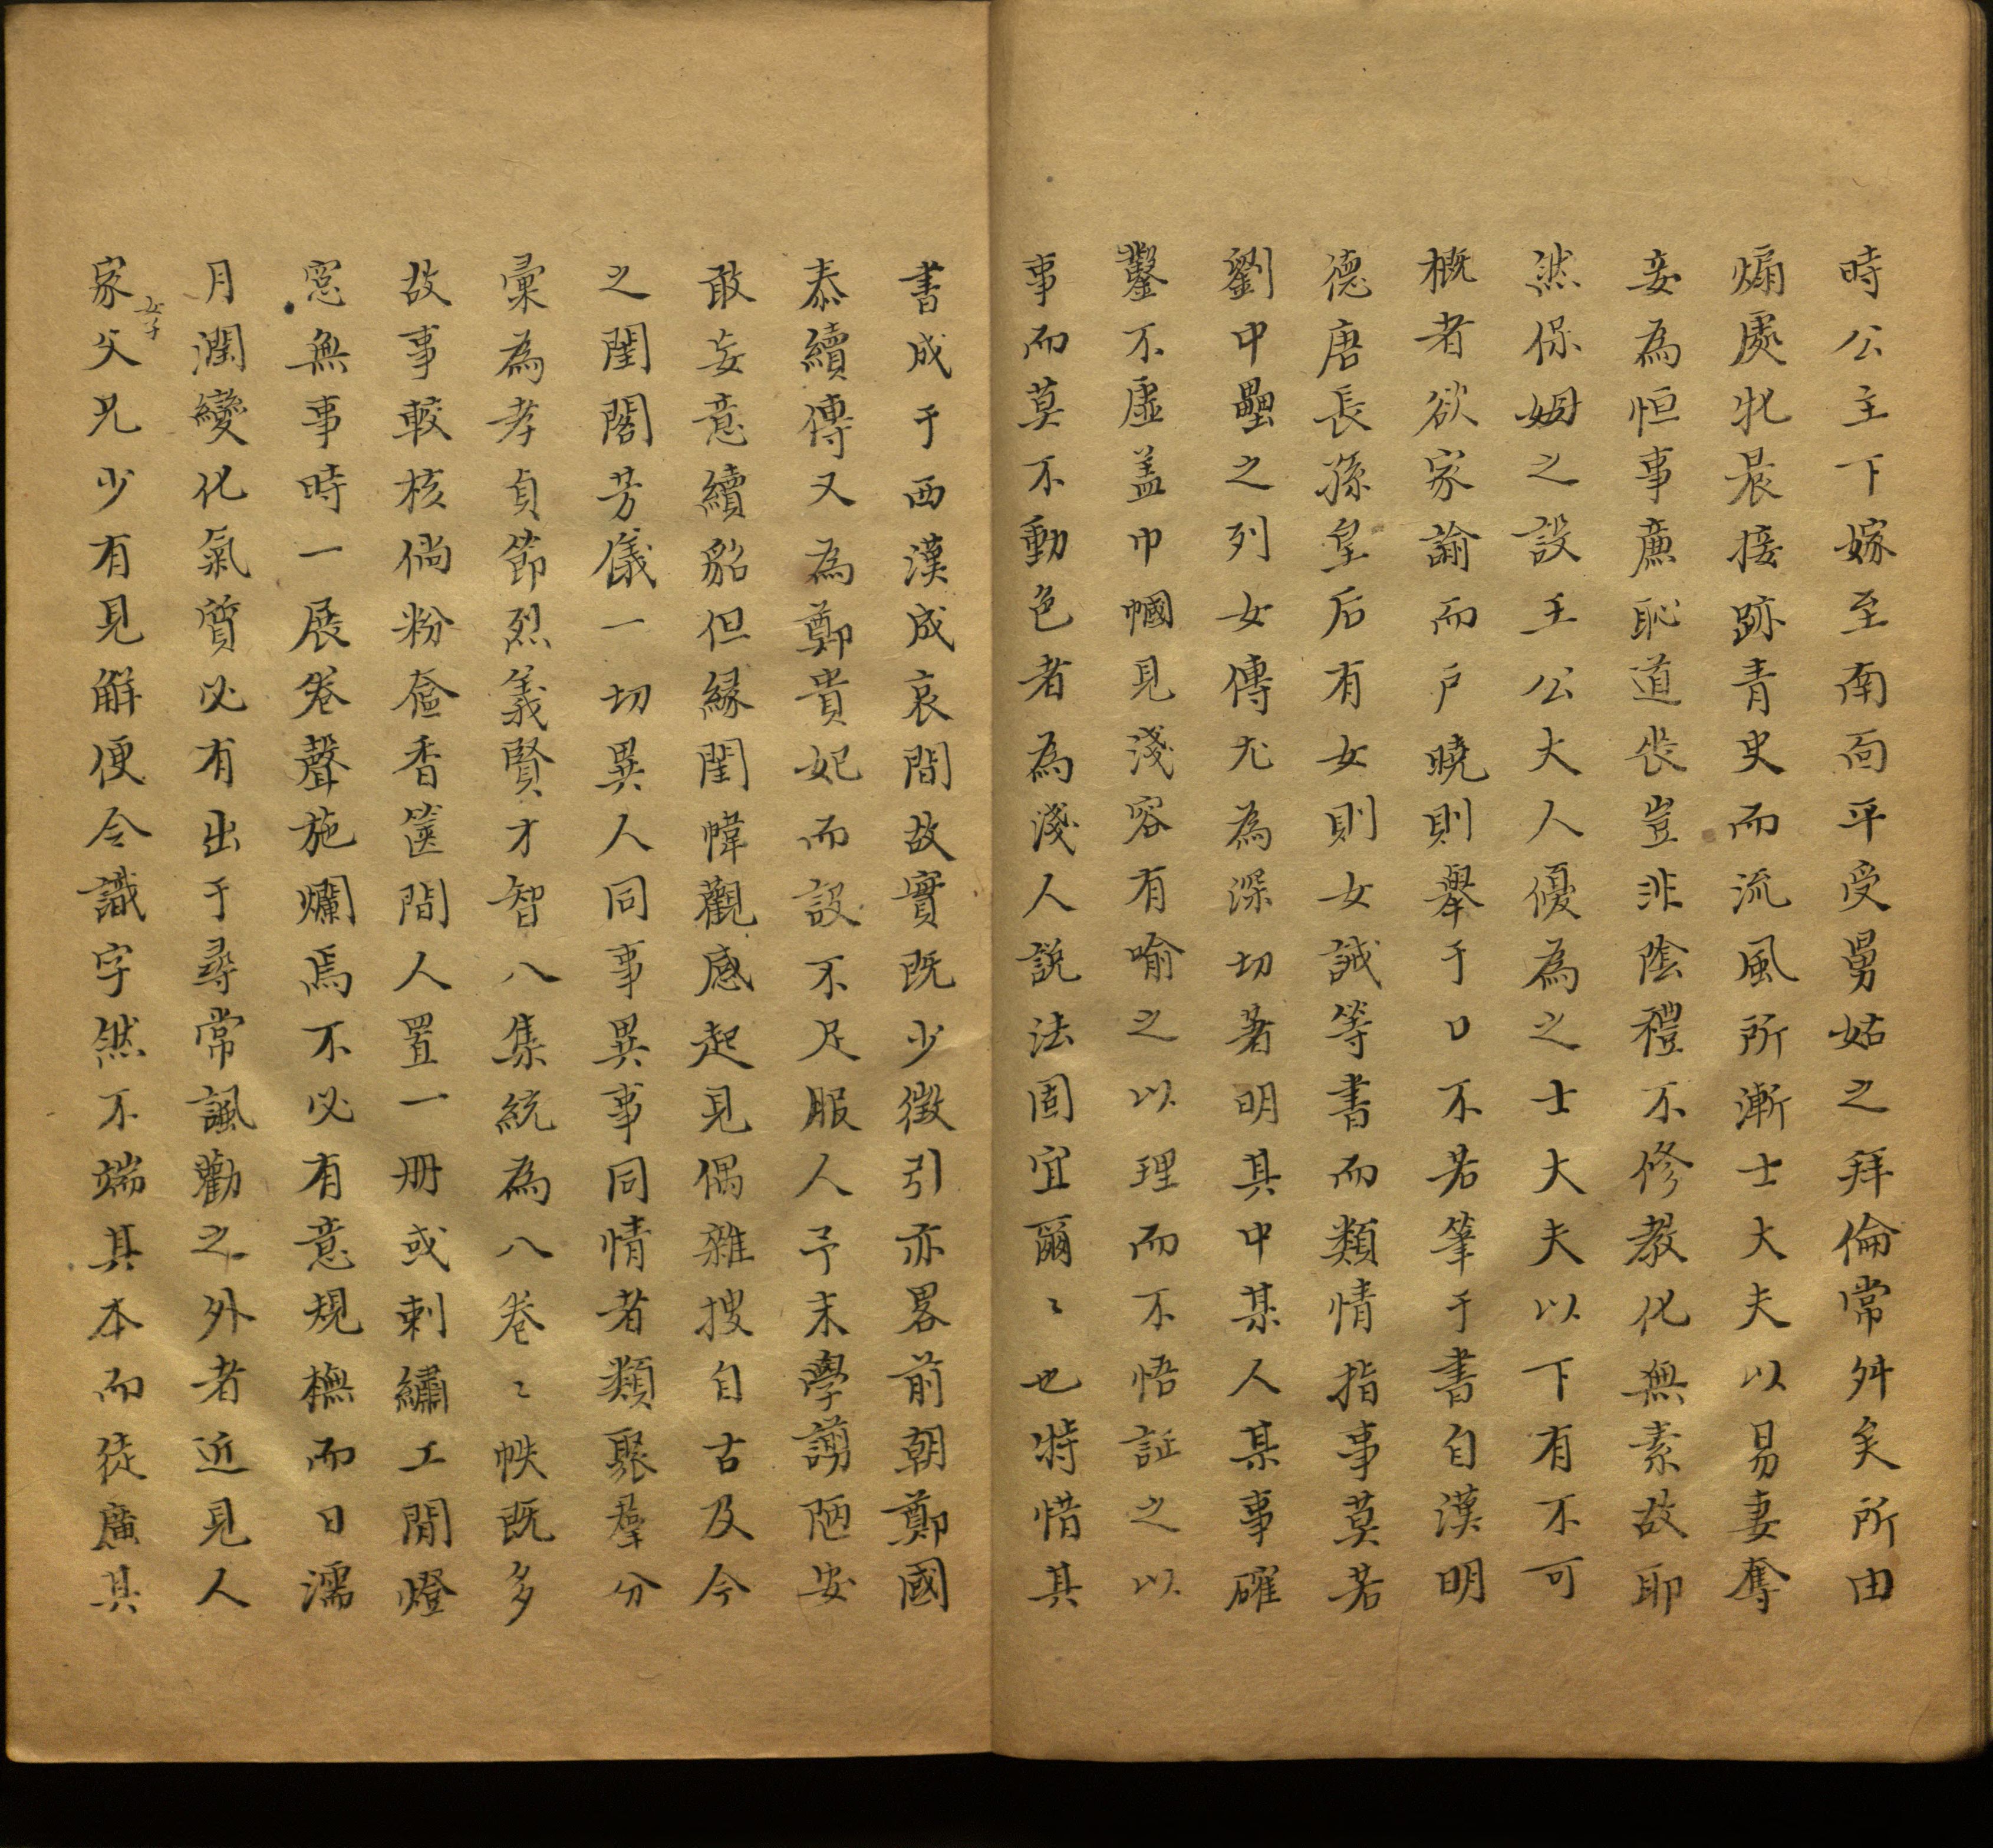 時公主下嫁至南面平受舅姑之拜倫常舛矣所由
煽處牝晨接跡青史而流風所漸士大夫以易妻奪
妾為恒事廉恥道丧豈非陰禮不修教化無素故耶
然保姆之設王公大人優為之士大夫以下有不可
概者欲家諭而戶曉則舉于口不若筆于書自漢明
德唐長孫皇后有女則女誡等書而類情指事莫若
劉中壘之列女傳尤為深切著明其中某人某事確
鑿不虛盖巾幗見淺容有喻之以理而不悟証之以
事而莫不動色者為淺人説法固宜爾〻也特惜其
書成于西漢成哀間故實既少徴引亦畧前朝鄭國
泰續傳又為鄭貴妃而設不足服人予末學謭陋安
敢妄意續貂但緣閨幃觀感起見偶雜搜自古及今
之閨閣芳儀一切異人同事異事同情者類聚羣分
彙為孝貞節烈義賢才智八集統為八卷〻帙既多
故事較核倘粉奩香篋間人置一册或刺繡工閒燈
窓無事時一展卷聲施爛焉不必有意規橅而日濡
月潤變化氣質必有出于尋常諷勸之外者近見人
家女子父兄少有見解便令識字然不端其本而徒廣其